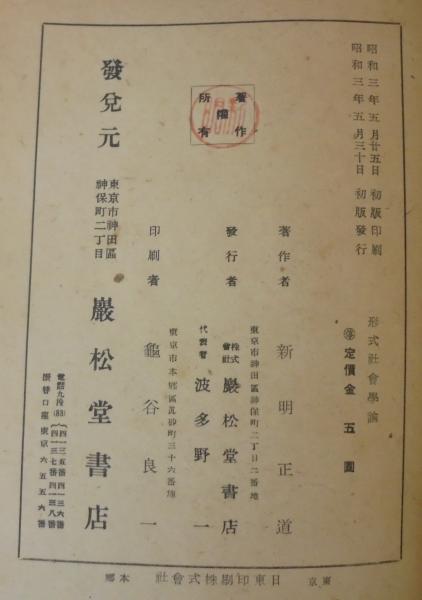 昭和三年五月廿五日 初版印刷
昭和三年五月三十日 初版發行
形式社會學論
定價金五圓
著作
權
所有
著作者 新明正道
東京市神田區神保町二丁目二番地
發行者 株式會社 巖松堂書店
代表者 波多野一
東京市本鄕區眞砂町三十六番地
印刷者 龜谷良一
發兌元
東京市神田區
神保町二丁目
巖松堂書店
電話九段(33)
四一三五番 四一三六番
四一三七番 四一三八番
振替口座東京六五五六番
東京 日東印刷株式會社 本鄕